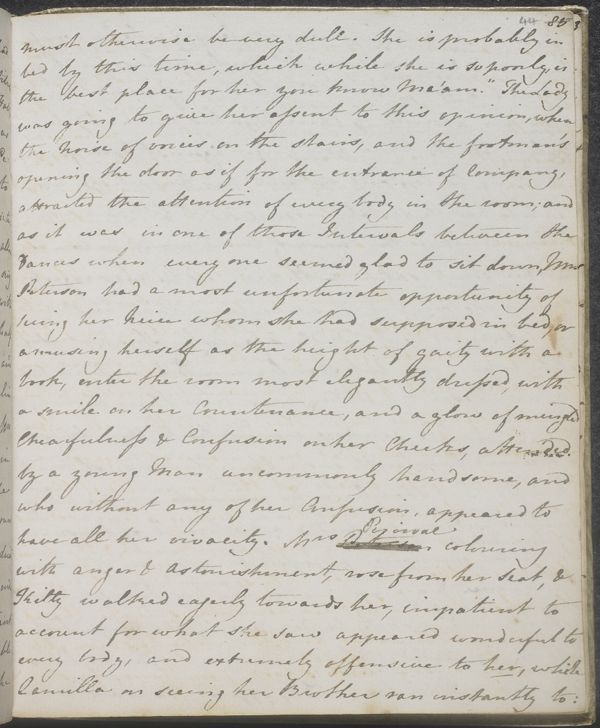 44 85
must otherwise be very dull. She is probably in
bed by this time, which while she is so poorly is
the best place for her you know Ma'am. The Lady
was going to give her assent to this opinion, when
the Noise of voices on the stairs, and the footman's
opening the door as if for the entrance of Company,
attracted the attention of every body in the room; and
as it was in one of those Intervals between the
Dances when every one seemed glad to sit down, Mrs
Peterson had a most unfortunate opportunity of
seeing her Neice whom she had supposed in bed, or
amusing herself as the height of gaity with a
book, enter the room most elegantly dressed, with
a smile on her Countenance, and a glow of mingled
Chearfulness & Confusion on her Cheeks, attended
by a young Man uncommonly handsome, and
who without any of her Confusion, appeared to
have all her vivacity. Mrs Percival colouring
with anger & astonishment, rose from her Seat, &
Kitty walked eagerly towards her, impatient to
account for what she saw appeared wonderful to
every body, and extremely offensive to her, while
Camilla on seeing her Brother ran instantly to